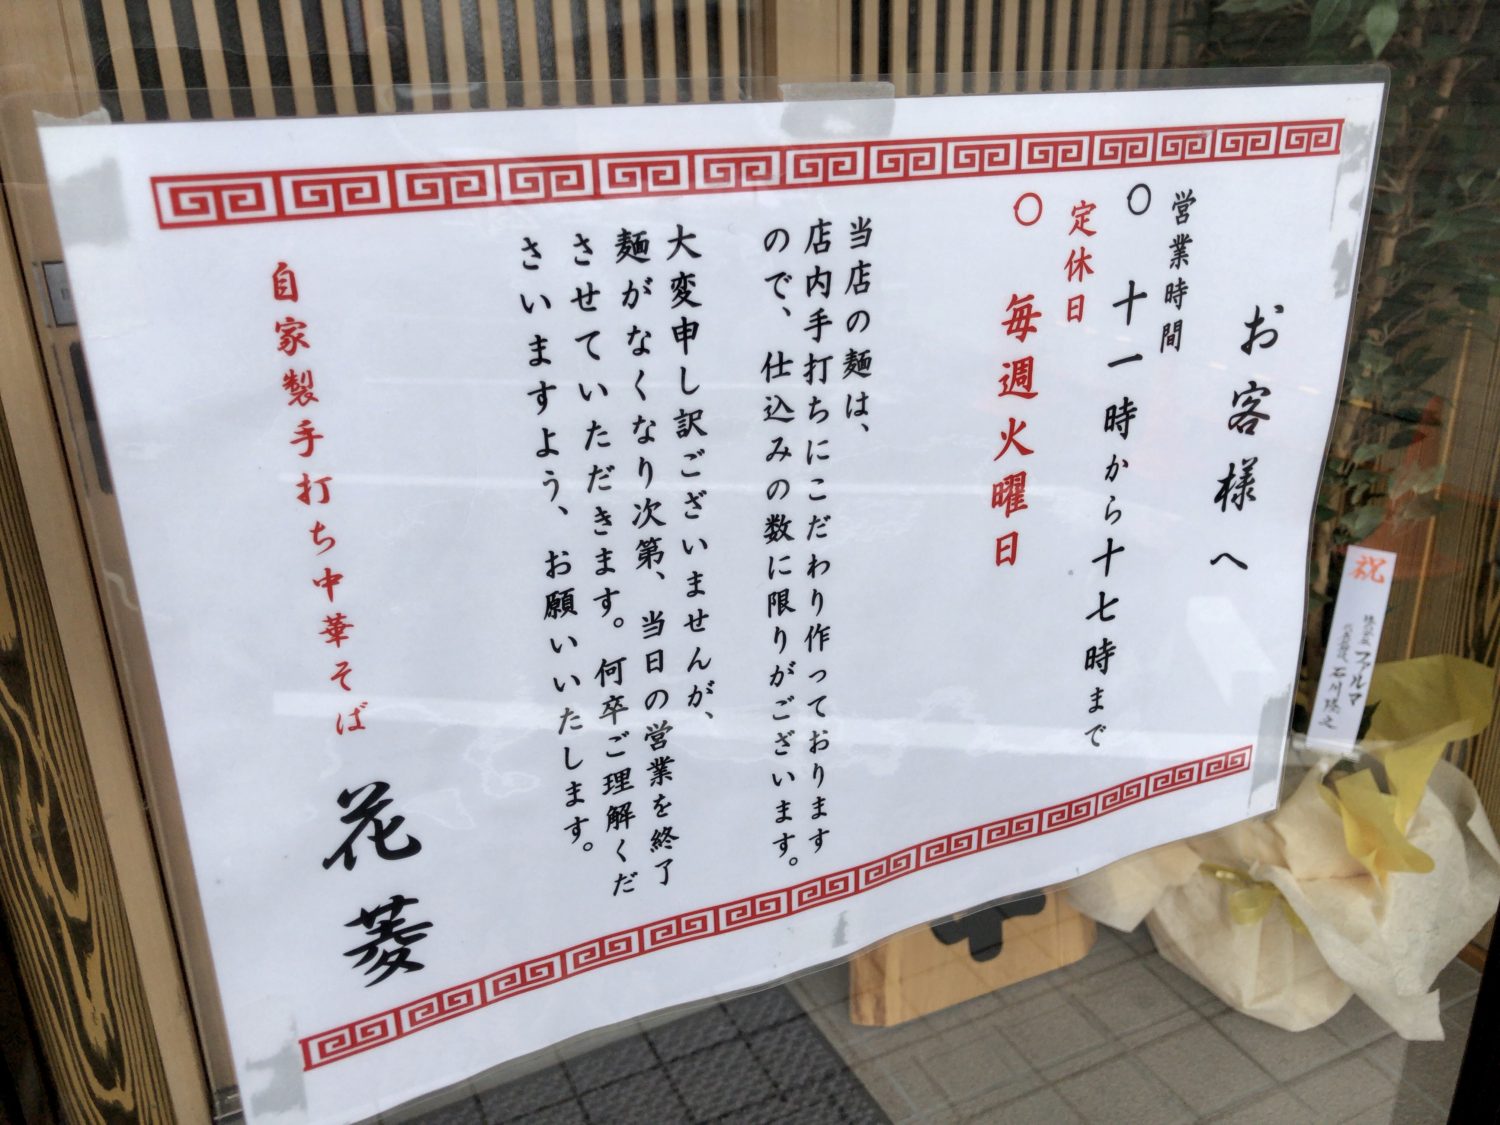 お客様へ
営業時間
〇 十一時から十七時まで
定休日
〇 毎週火曜日
当店の麺は、
店内手打ちにこだわり作っております
ので、仕込みの数に限りがございます。
大変申し訳ございませんが、
麺がなくなり次第、当日の営業を終了
させていただきます。何卒ご理解くだ
さいますよう、お願いいたします。
自家製手打ち中華そば 花菱
祝
ファルマ
石川